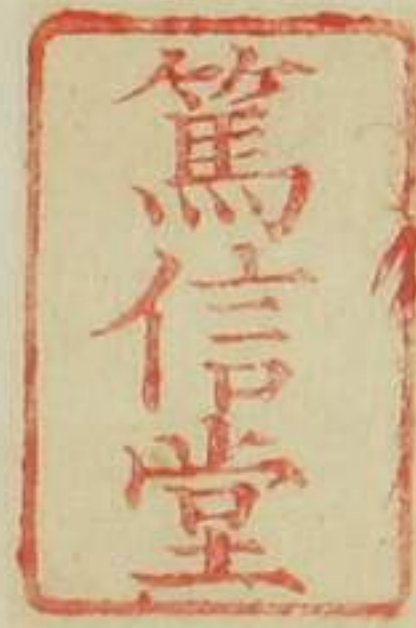 篤信堂